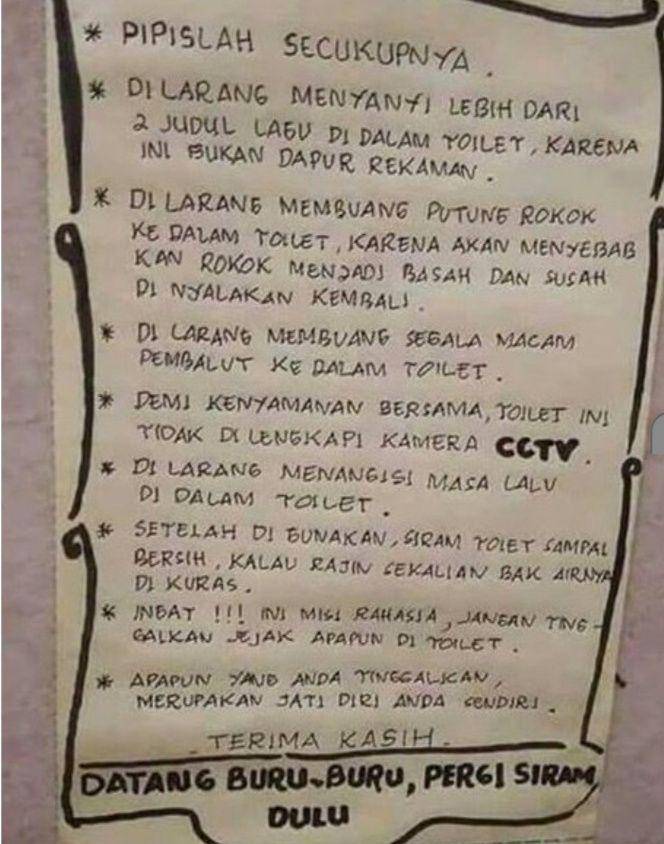 * PIPISLAH SECUKUPNYA.
* DI LARANG MENYANYI LEBIH DARI
2 JUDUL LAGU DI DALAM TOILET, KARENA
INI BUKAN DAPUR REKAMAN.
* DI LARANG MEMBUANG PUTUNG ROKOK
KE DALAM TOILET, KARENA AKAN MENYEBAB
KAN ROKOK MENJADI BASAH DAN SUSAH
DI NYALAKAN KEMBALI.
* DI LARANG MEMBUANG SEGALA MACAM
PEMBALUT KE DALAM TOILET.
* DEMI KENYAMANAN BERSAMA, TOILET INI
TIDAK DI LENGKAPI KAMERA CCTV.
* DI LARANG MENANGISI MASA LALU
DI DALAM TOILET.
* SETELAH DI GUNAKAN, SIRAM TOLET SAMPAI
BERSIH, KALAU RAJIN SEKALIAN BAK AIRNYA
DI KURAS.
* INGAT !!! INI MISI RAHASIA, JANGAN TING-
GALKAN JEJAK APAPUN DI TOILET.
* APAPUN YANG ANDA TINGGALKAN,
MERUPAKAN JATI DIRI ANDA SENDIRI.
TERIMA KASIH.
DATANG BURU-BURU, PERGI SIRAM
DULU